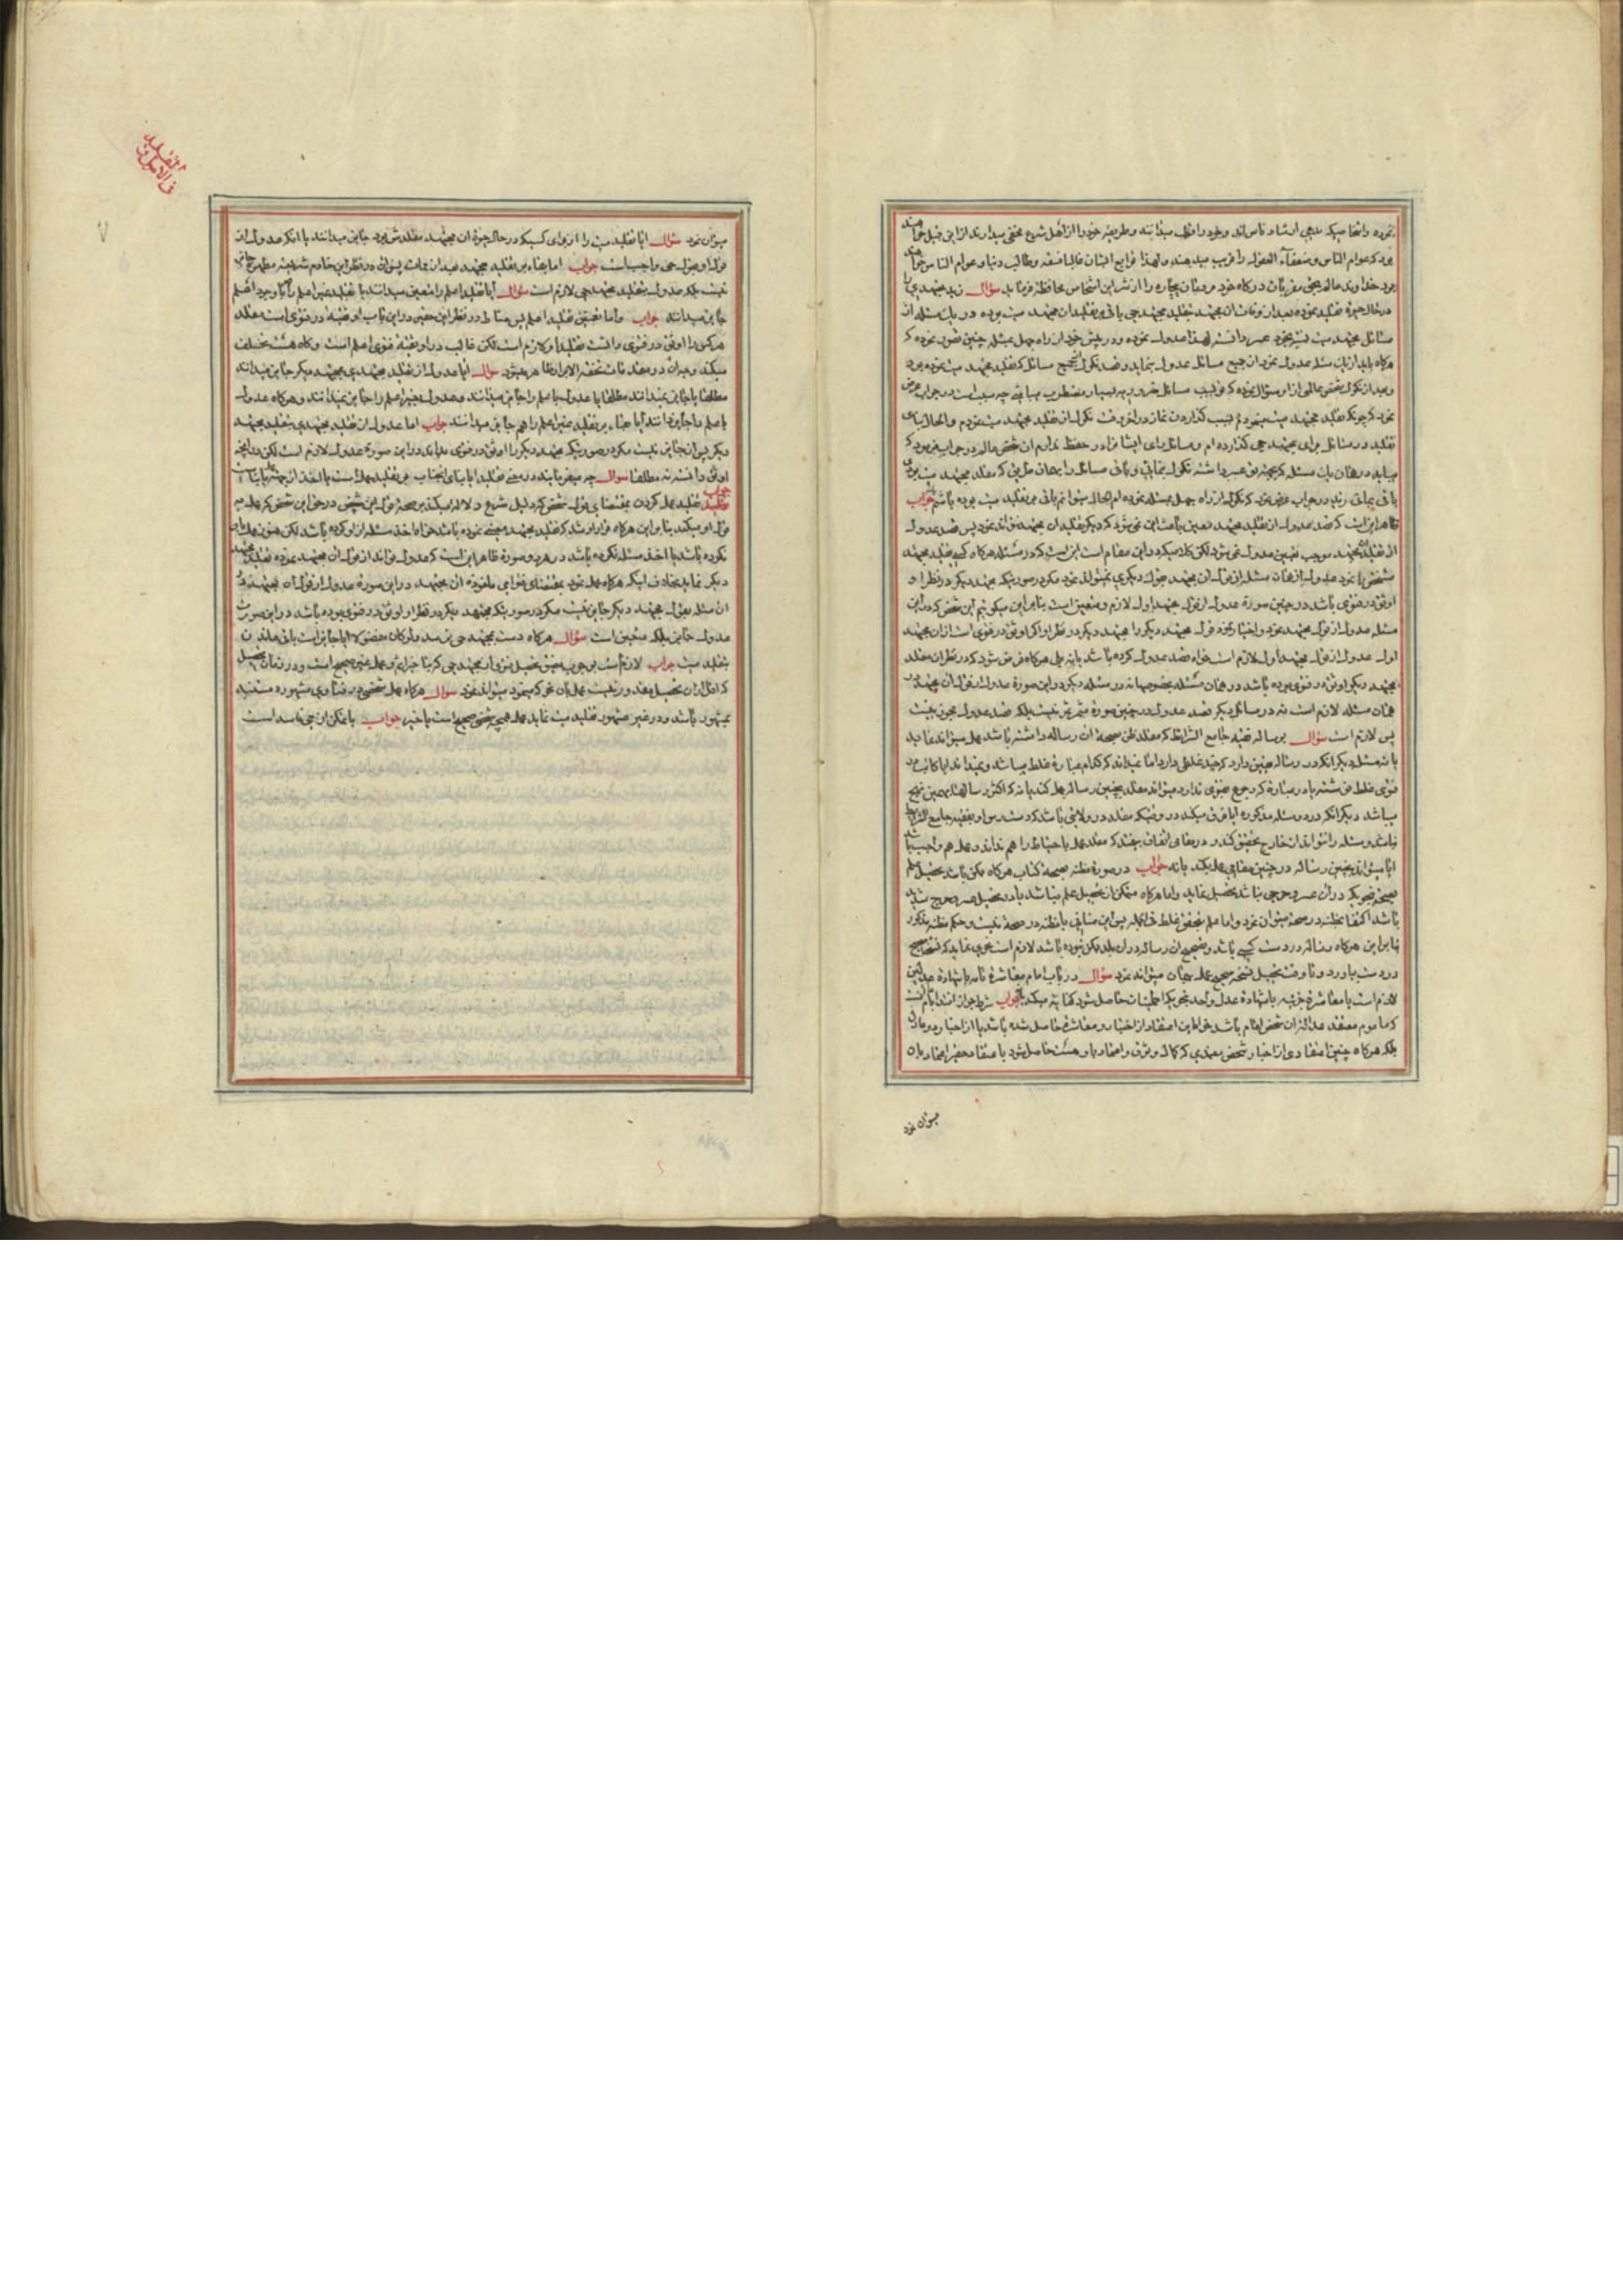 نموده و اشخاصیکه مدعی ارشاد ناس‌اند و خود را قطب میدانند و طریقه خود را از اهل شرع مخفی میدارند از این قبیل خواهند
بود که عوام الناس و ضعفاء العقول را فریب میدهند و لهذا توابع ایشان غالبا سفهه و طالب دنیا و عوام الناس خواهند
بود خداوند عالم بحق مقربان درگاه خود مؤمنان بیچاره را از شر این اشخاص محافظه فرماید سؤال زید مجتهدی را
در حال حیوة تقلید نموده بعد از وفات آن مجتهد تقلید مجتهد حی یا باقی بر تقلید آن مجتهد میت بوده در یک مسئله از
مسائل مجتهد میت بخود عسر دانسته لهذا عدول نموده و در پیش خود از راه جهل بمسئله چنین تصور نموده که
هرگاه باید از یک مسئله عدول نمود از جمیع مسائل عدول بنماید و قصد نکول از جمیع مسائل که تقلید مجتهد میت نموده بود
و بعد از نکول شخص عالمی از او سؤال نموده که در مسائل ضروریه
نمود که چونکه تقلید مجتهد میت مینمودم بسبب گذاردن نماز در آخر وقت نکول از تقلید مجتهد میت نمودم و الحال بنای
تقلید در مسائل برای مجتهد حی گذارده‌ام و مسائل رای ایشان را در حفظ ندارم آن شخص عالم در جواب فرمود که
میباید در همان یک مسئله که بجهة عسر داشته نکول بنمائی و باقی مسائل را بهمان طریق که مقلد مجتهد میت بودی
باقی بمانی زید در جواب عرض نمود که نکول از راه جهل بمسئله نموده‌ام الحال میتوانم باقی بر تقلید میت بوده باشم جواب
ظاهر این است که قصد عدول از تقلید مجتهد معین باعث این نمی‌شود که دیگر تقلید آن مجتهد نتواند نمود پس قصد عدول
از تقلید مجتهد موجب تعیین عدول نمی‌شود لکن کلام دیگر در این مقام است این است که در مسئله هرگاه کسی تقلید مجتهد
مشخص را نمود عدول از همان مسئله از قول آن مجتهد بقول دیگری نمیتواند نمود مگر در صورتیکه مجتهد دیگر در نظر او
اوثق در فتوی باشد در چنین صورة عدول از قول مجتهد اول لازم و متعین است بنابراین میگوئیم این شخص که در این
مسئله عدول از قول مجتهد نمود و اختیار نمود قول مجتهد دیگر را مجتهد دیگر در نظر او اگر اوثق در فتوی است از آن مجتهد
اول عدول از قول مجتهد اول لازم است خواه قصد عدول کرده باشد یا نه بلی هرگاه فرض شود که در نظر آن مقلد
مجتهد دیگر اوثق در فتوی بوده باشد در همان مسئله بخصوصها نه در مسئله دیگر در این صورة عدول از قول آن مجتهد در
همان مسئله لازم است نه در مسائل دیگر قصد عدول در چنین صورة مثمر ثمر نیست بلکه قصد عدول مجوز نیست
پس لازم است سؤال برساله فقیه جامع الشرائط که مقلد ظن بصحة آن رساله داشته باشد عمل میتواند نماید
یا نه مسئله دیگر آنکه در رساله یقین دارد که چند غلطی دارد اما نمیداند که کدام عبارة غلط میباشد و نمیداند آیا کاتب در
فتوی غلط نوشته یا در عبارة که رجوع بفتوی ندارد میتواند مقلد بچنین رساله عمل کند یا نه که اکثر رسالها بهمین نهج
میباشد دیگر آنکه در دو مسئله مذکوره آیا فرق میکند در وقتیکه مقلد در ولایتی باشد که دسترس او بفقیه جامع الشرایط
نباشد و مسئله را نتواند از خارج تحقیق کند و در مقامی اتفاق بیفتد که مقلد عمل باحتیاط را هم نداند و عمل هم واجب باشد
آیا میتواند بچنین رساله در چنین مقامی عمل بکند یا نه جواب در صورة مظنه بصحة کتاب هرگاه ممکن باشد تحصیل علم
بصحة بنحویکه در آن عسر و حرجی نباشد تحصیل نماید و اما هرگاه متمکن از تحصیل علم نباشد یا در تحصیل عسر و حرج شدید
باشد اکتفا بمظنه در صحة میتوان نمود و اما علم بتحقق غلط فی الجمله پس این منافی با مظنه در صحة نیست و حکم مظنه مذکور شد
بنابراین هرگاه رساله در دست کسی باشد و تصحیح آن رساله در آن بلد ممکن نبوده باشد لازم است سعی نماید که نسخه صحیح
در دست بیاورد و تا وقت تحصیل نسخه صحیحه عمل بهمان میتواند نمود سؤال در باب امام معاشرة تامه یا شهادة عدلین
لازم است یا معاشرة جزئیه یا شهادة عدل واحد بنحویکه اطمینان حاصل شود کفایة میکند یا نه جواب شرط جواز اقتدا بامام آنست
که مأموم معتقد عدالة آن شخص امام باشد خواه این اعتقاد از اختبار و معاشرة حاصل شده باشد یا از اخبار دو عادل
بلکه هرگاه چنین اعتقادی از اخبار شخص معتمدی که کمال وثوق و اعتماد باو هست حاصل شود باعتقاد حقیر اعتماد بآن
میتوان نمود
میتوان نمود سؤال آیا تقلید میت را از برای کسیکه در حال حیوة آن مجتهد مقلدش بود جایز میدانند یا آنکه عدول از
قول او بقول حی واجب است جواب اما بقاء بر تقلید مجتهد بعد از ممات پس آن در نظر این خادم شریعة مطهره جایز
نیست بلکه عدول بتقلید مجتهد حی لازم است سؤال آیا تقلید اعلم را متعین میدانند یا تقلید غیر اعلم را با وجود اعلم
جایز میدانند جواب و اما تعیین تقلید اعلم پس مناط در نظر این حقیر در این باب اوثقیة در فتوی است مقلد
هرکس را اوثق در فتوی دانست تقلید او لازم است لکن غالب در اوثقیة فتوی اعلم است و گاه هست تخلف
میکند و میزان در مقدمات تحفة الابرار ظاهر میشود سؤال آیا عدول از تقلید مجتهدی بمجتهد دیگر جایز میدانند
مطلقا یا جایز نمیدانند مطلقا یا عدول باعلم را جایز میدانند و عدول بغیر اعلم را جایز نمیدانند و هرگاه عدول
باعلم را جایز دانند آیا بقاء بر تقلید غیر اعلم را هم جایز میدانند جواب اما عدول از تقلید مجتهدی بتقلید مجتهد
دیگر پس آن جایز نیست مگر در صورتیکه مجتهد دیگر را اوثق در فتوی بداند در این صورة عدول لازم است لکن در آنچه
اوثق دانسته نه مطلقا سؤال چه میفرمایند در معنی تقلید آیا بنای آنجناب بر تقلید عمل است یا اخذ
جواب
تقلید عمل کردن بمقتضای قول شخص که دلیل شرع دلالة میکند بر صحة قول این شخص در حق این شخص که عمل به
قول او میکند بنابراین هرگاه قرار او شد که تقلید مجتهد معینی نموده باشد خواه اخذ مسئله از او کرده باشد لکن هنوز عمل بآن
نکرده باشد یا اخذ مسئله نکرده باشد در هر دو صورة ظاهر این است که عدول تواند از قول آن مجتهد نموده تقلید مجتهد
دیگر نماید بخلاف اینکه هرگاه عمل نمود بمقتضای فتوای مأخوذه آن مجتهد در این صورة عدول از قول آن مجتهد در
آن مسئله بقول مجتهد دیگر جایز نیست مگر در صورتیکه مجتهد دیگر در نظر او اوثق در فتوی بوده باشد در این صورت
عدول جایز بلکه متعین است سؤال هرگاه دست بمجتهد حی نرسد ولو کان مقصرا آیا جایز است باقی ماندن
بتقلید میت جواب لازم است بر وجوب
که امکان تحصیل سؤال هرگاه عمل شخصی در فتاوی مشهوره مستند
بمشهور باشد و در غیر مشهور تقلید میت نماید عمل همچه شخصی صحیح است یا خیر جواب با تمکن از حی فاسد است